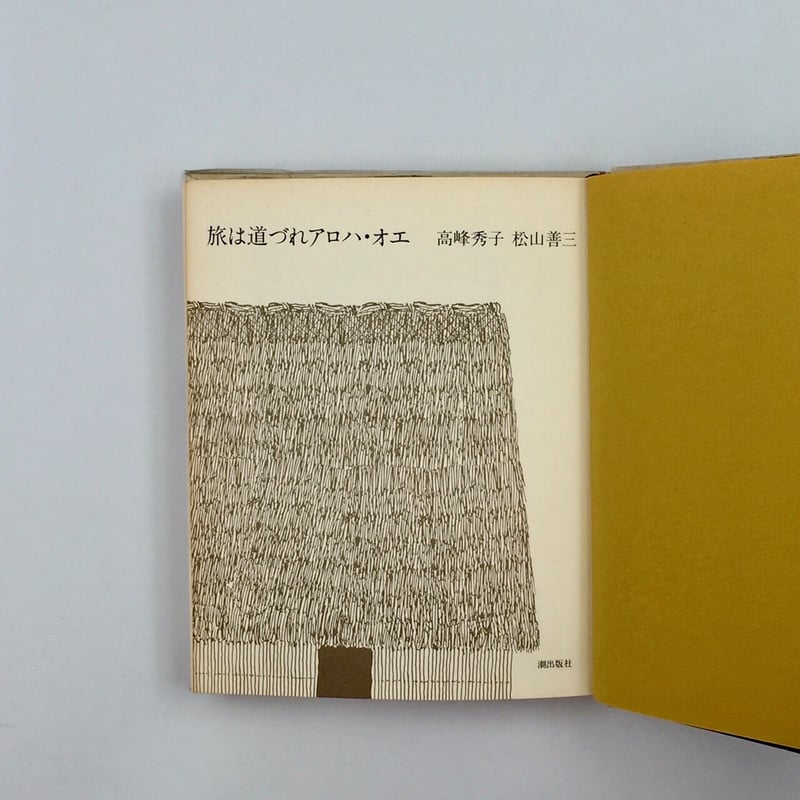 旅は道づれアロハ・オエ 高峰秀子 松山善三
潮出版社